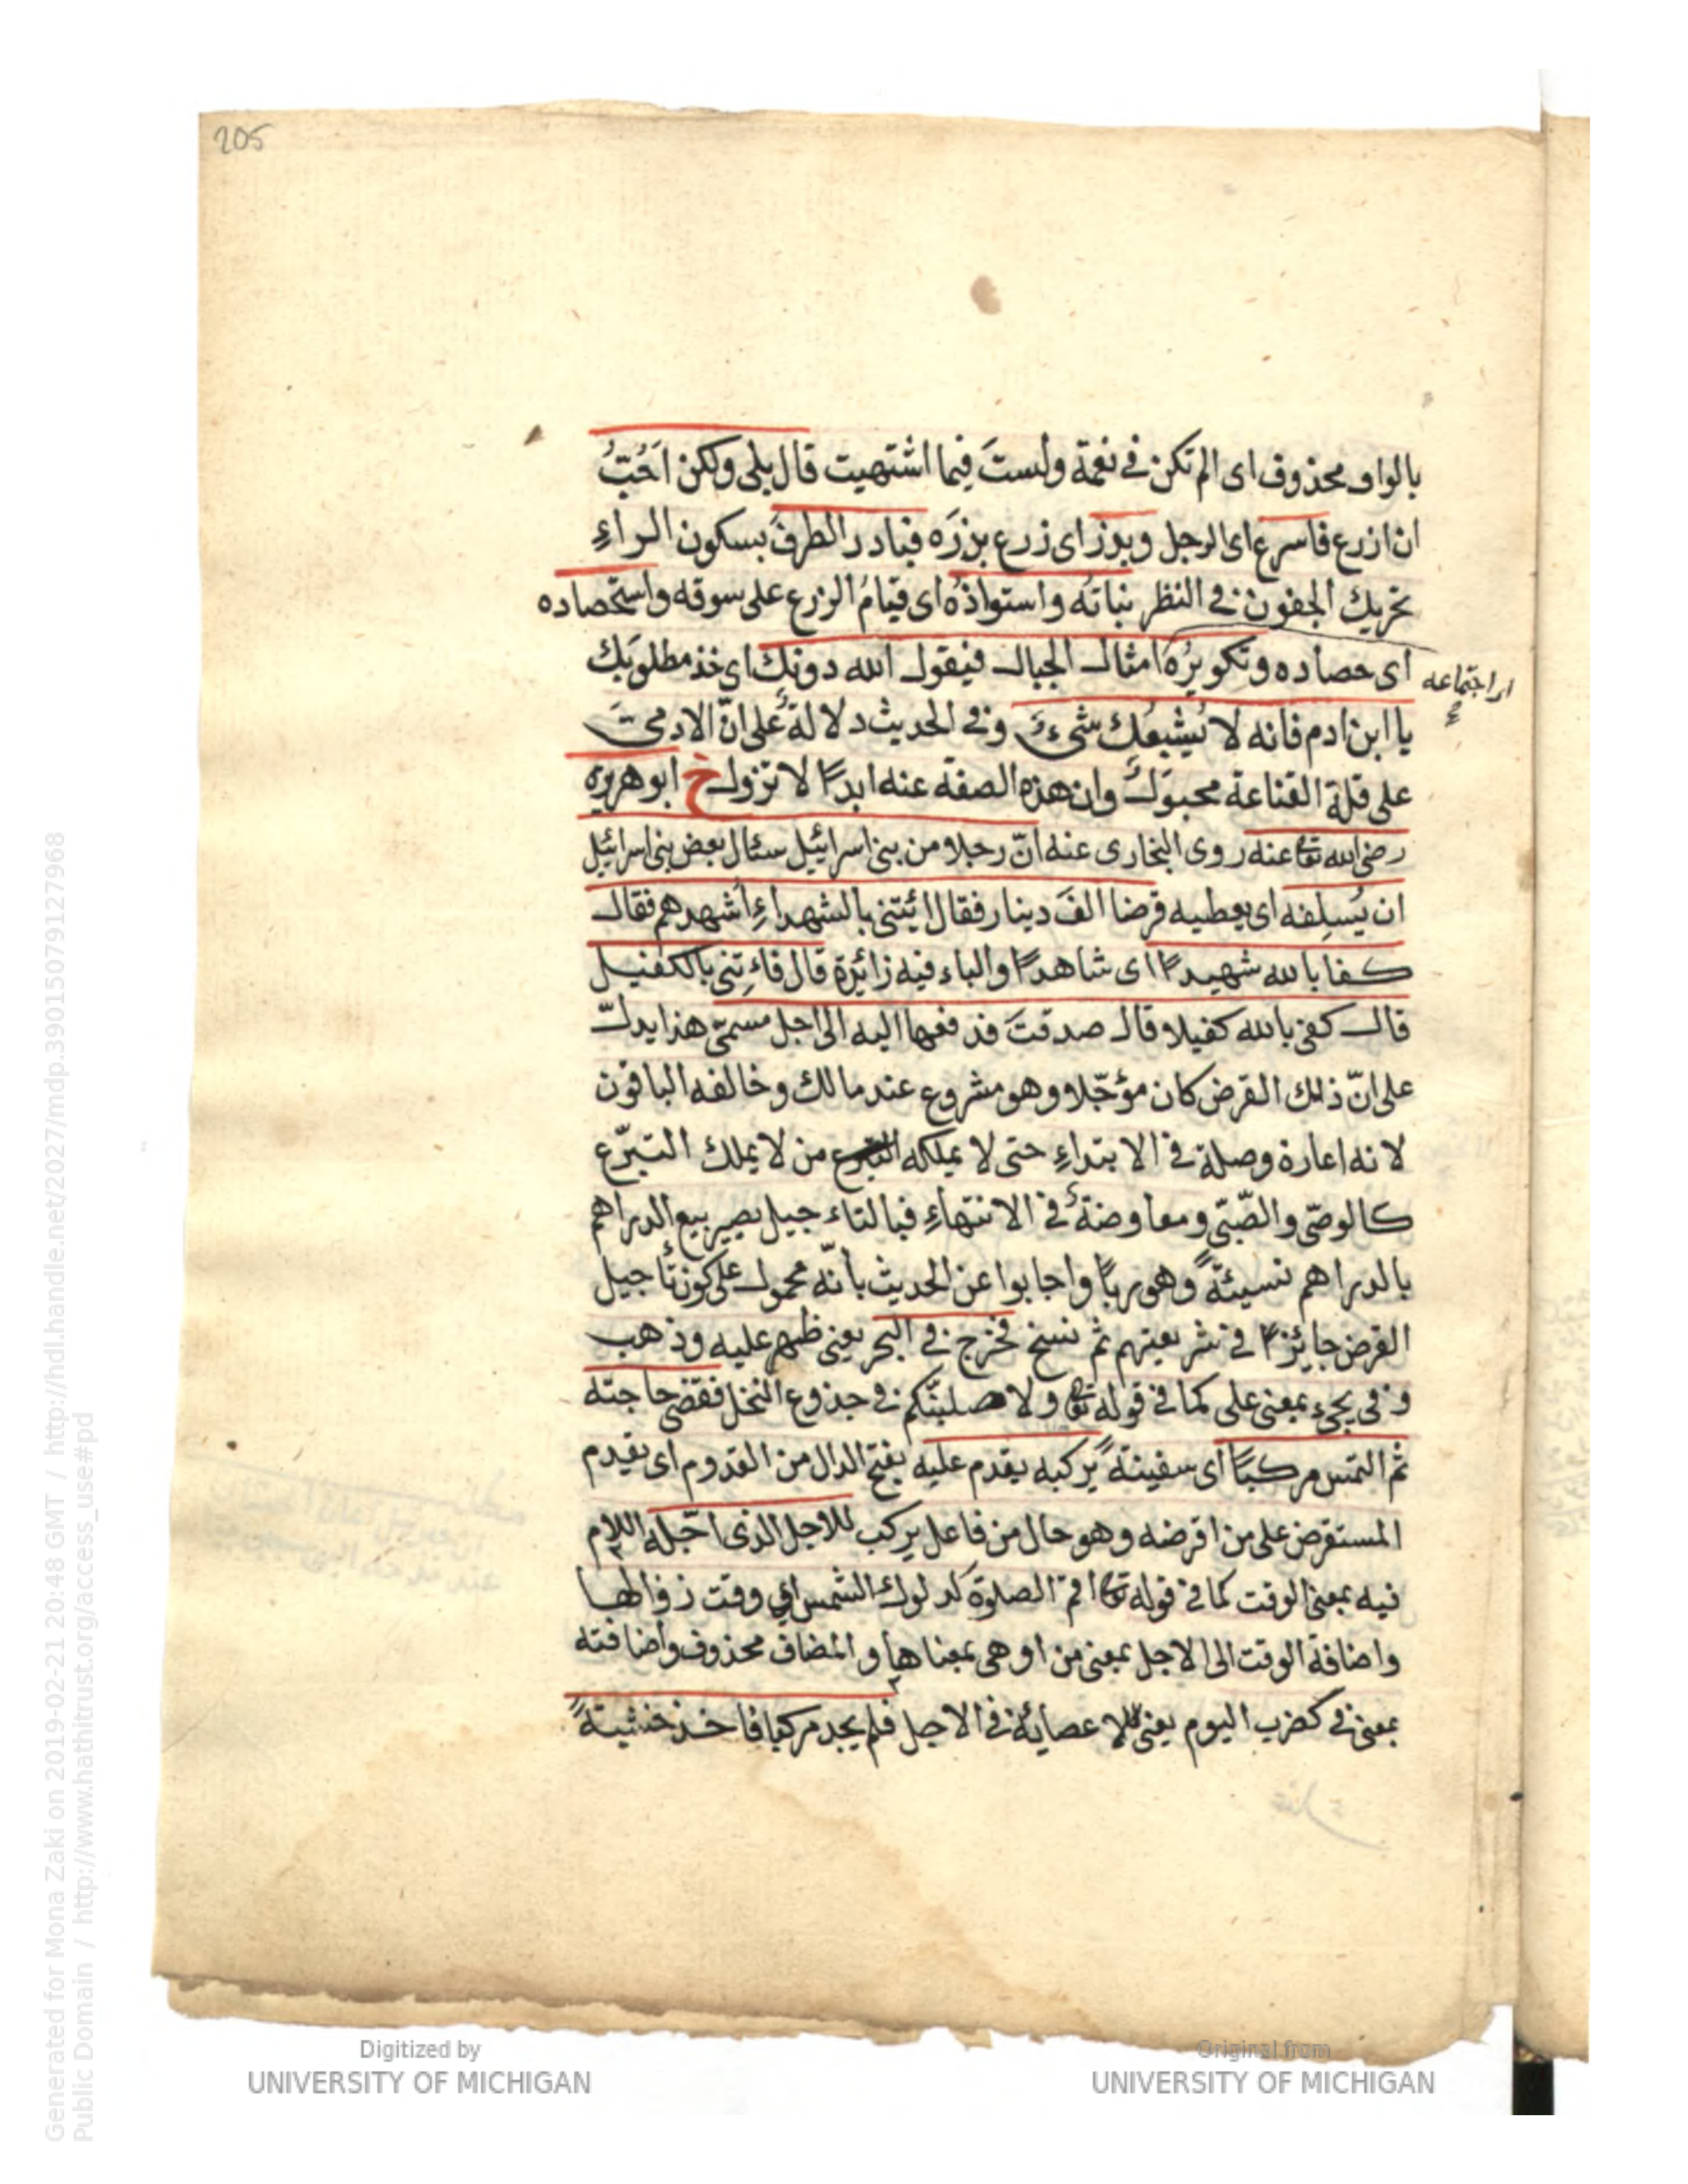 205
بالواو محذوف اى الم تكن فى نعمة ولست فيما اشتهيت قال بلى ولكن اُحُبُّ
ان ازرع فاسرع اى الرجل وبذر اى زرع بذرَه فبادر الطرفَ بسكون الراءِ
تحريك الجفون فى النظر نباتُه واستواؤُه اى قيامُ الزرع على سوقه واستحصاده
اى حصاده وتكويرُه امثال الجبال فيقول الله دونك اى خذ مطلوبَك
اى اجتماعه
يا ابن ادم فانه لا يُشبعُك شىءٌ وفى الحديث دلالةٌ على انّ الادمىَّ
على قلة القناعة محبوك وان هذه الصفة عنه ابدًا لا تزول خ ابو هريره
رضى الله تعا عنه روى البخارى عنه انّ رجلا من بنى اسرائيل سئال بعض بنى اسرائيل
ان يُسلِفه اى يعطيه قرضا الفَ دينار فقال ائيتنى بالشهداءِ اُشهدهم فقال
كفا بالله شهيدًا اى شاهدًا والباء فيه زائرة قال فاءتِنى بالكفيل
قال كفى بالله كفيلا وقال صدقتَ فدفعها اليه الى اجل مسمّى هذا يدلّ
على انّ ذلك القرض كان مؤجّلا وهو مشروع عند مالك وخالفه الباقون
لانه اعارة وصلة فى الابتداءِ حتى لا يملكه التبرع من لا يملك التبرّع
كالوصّى والصّبّى ومعاوضةٌ فى الانتهاءِ فبالتاءجيل يصير بيع الدراهم
بالدراهم نسيئةً وهو ربًا واجابوا عن الحديث بانّه محمول على كون تأجيل
القرض جايزًا فى شريعتهم ثم نسخ فخرج فى البحر يعنى ظهر عليه وذهب
وفى يجىء بمعنى على كما فى قوله تعا ولاصلبنّكم فى جذوع النخل فقضى حاجته
ثم التمس مركبًا اى سفينةً يركبه يقدم عليه بفتح الدال من القدوم اى يقدم
المستقرض على من اقرضه وهو حال من فاعل يركب للاجل الذى اجّله اللام
فيه بمعنى الوقت كما فى قوله تعا اقم الصلوة لدلوك الشمس اى وقت زوالها
واضافة الوقت الى الاجل بمعنى من او هى بمعناها والمضاف محذوف واضافته
بمعنى فى كضرب اليوم يعنى للاعصائه فى الاجل فلم يجد مركبا فاخذ خشبةً
Generated for Mona Zaki on 2019-02-21 20:48 GMT / http://hdl.handle.net/2027/mdp.39015079127968
Public Domain / http://www.hathitrust.org/access_use#pd
Digitized by
UNIVERSITY OF MICHIGAN
Original from
UNIVERSITY OF MICHIGAN